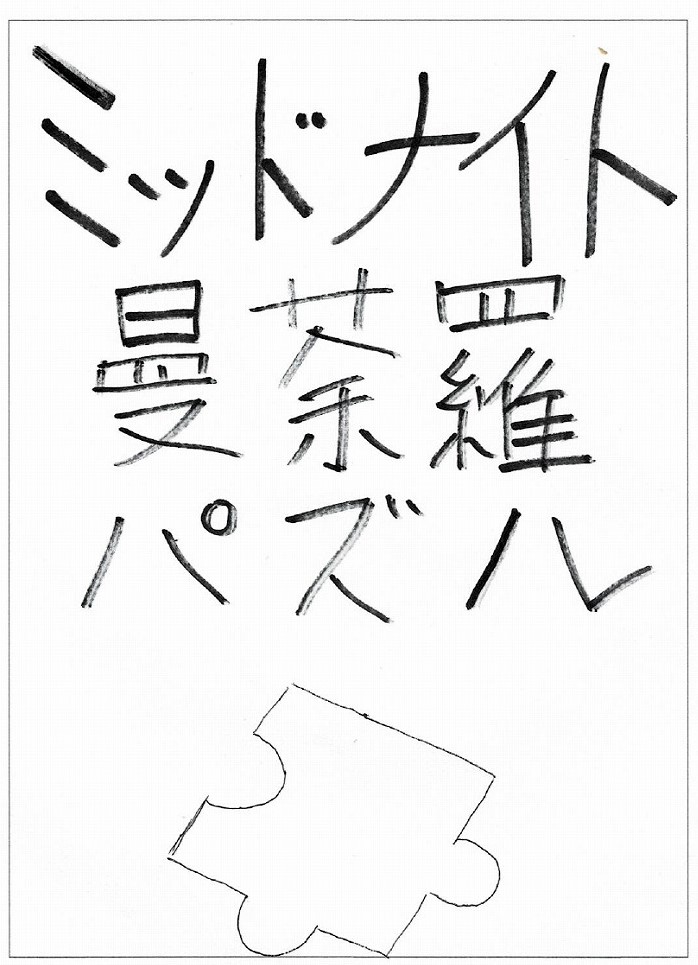 ミッドナイト
曼荼羅
パズル